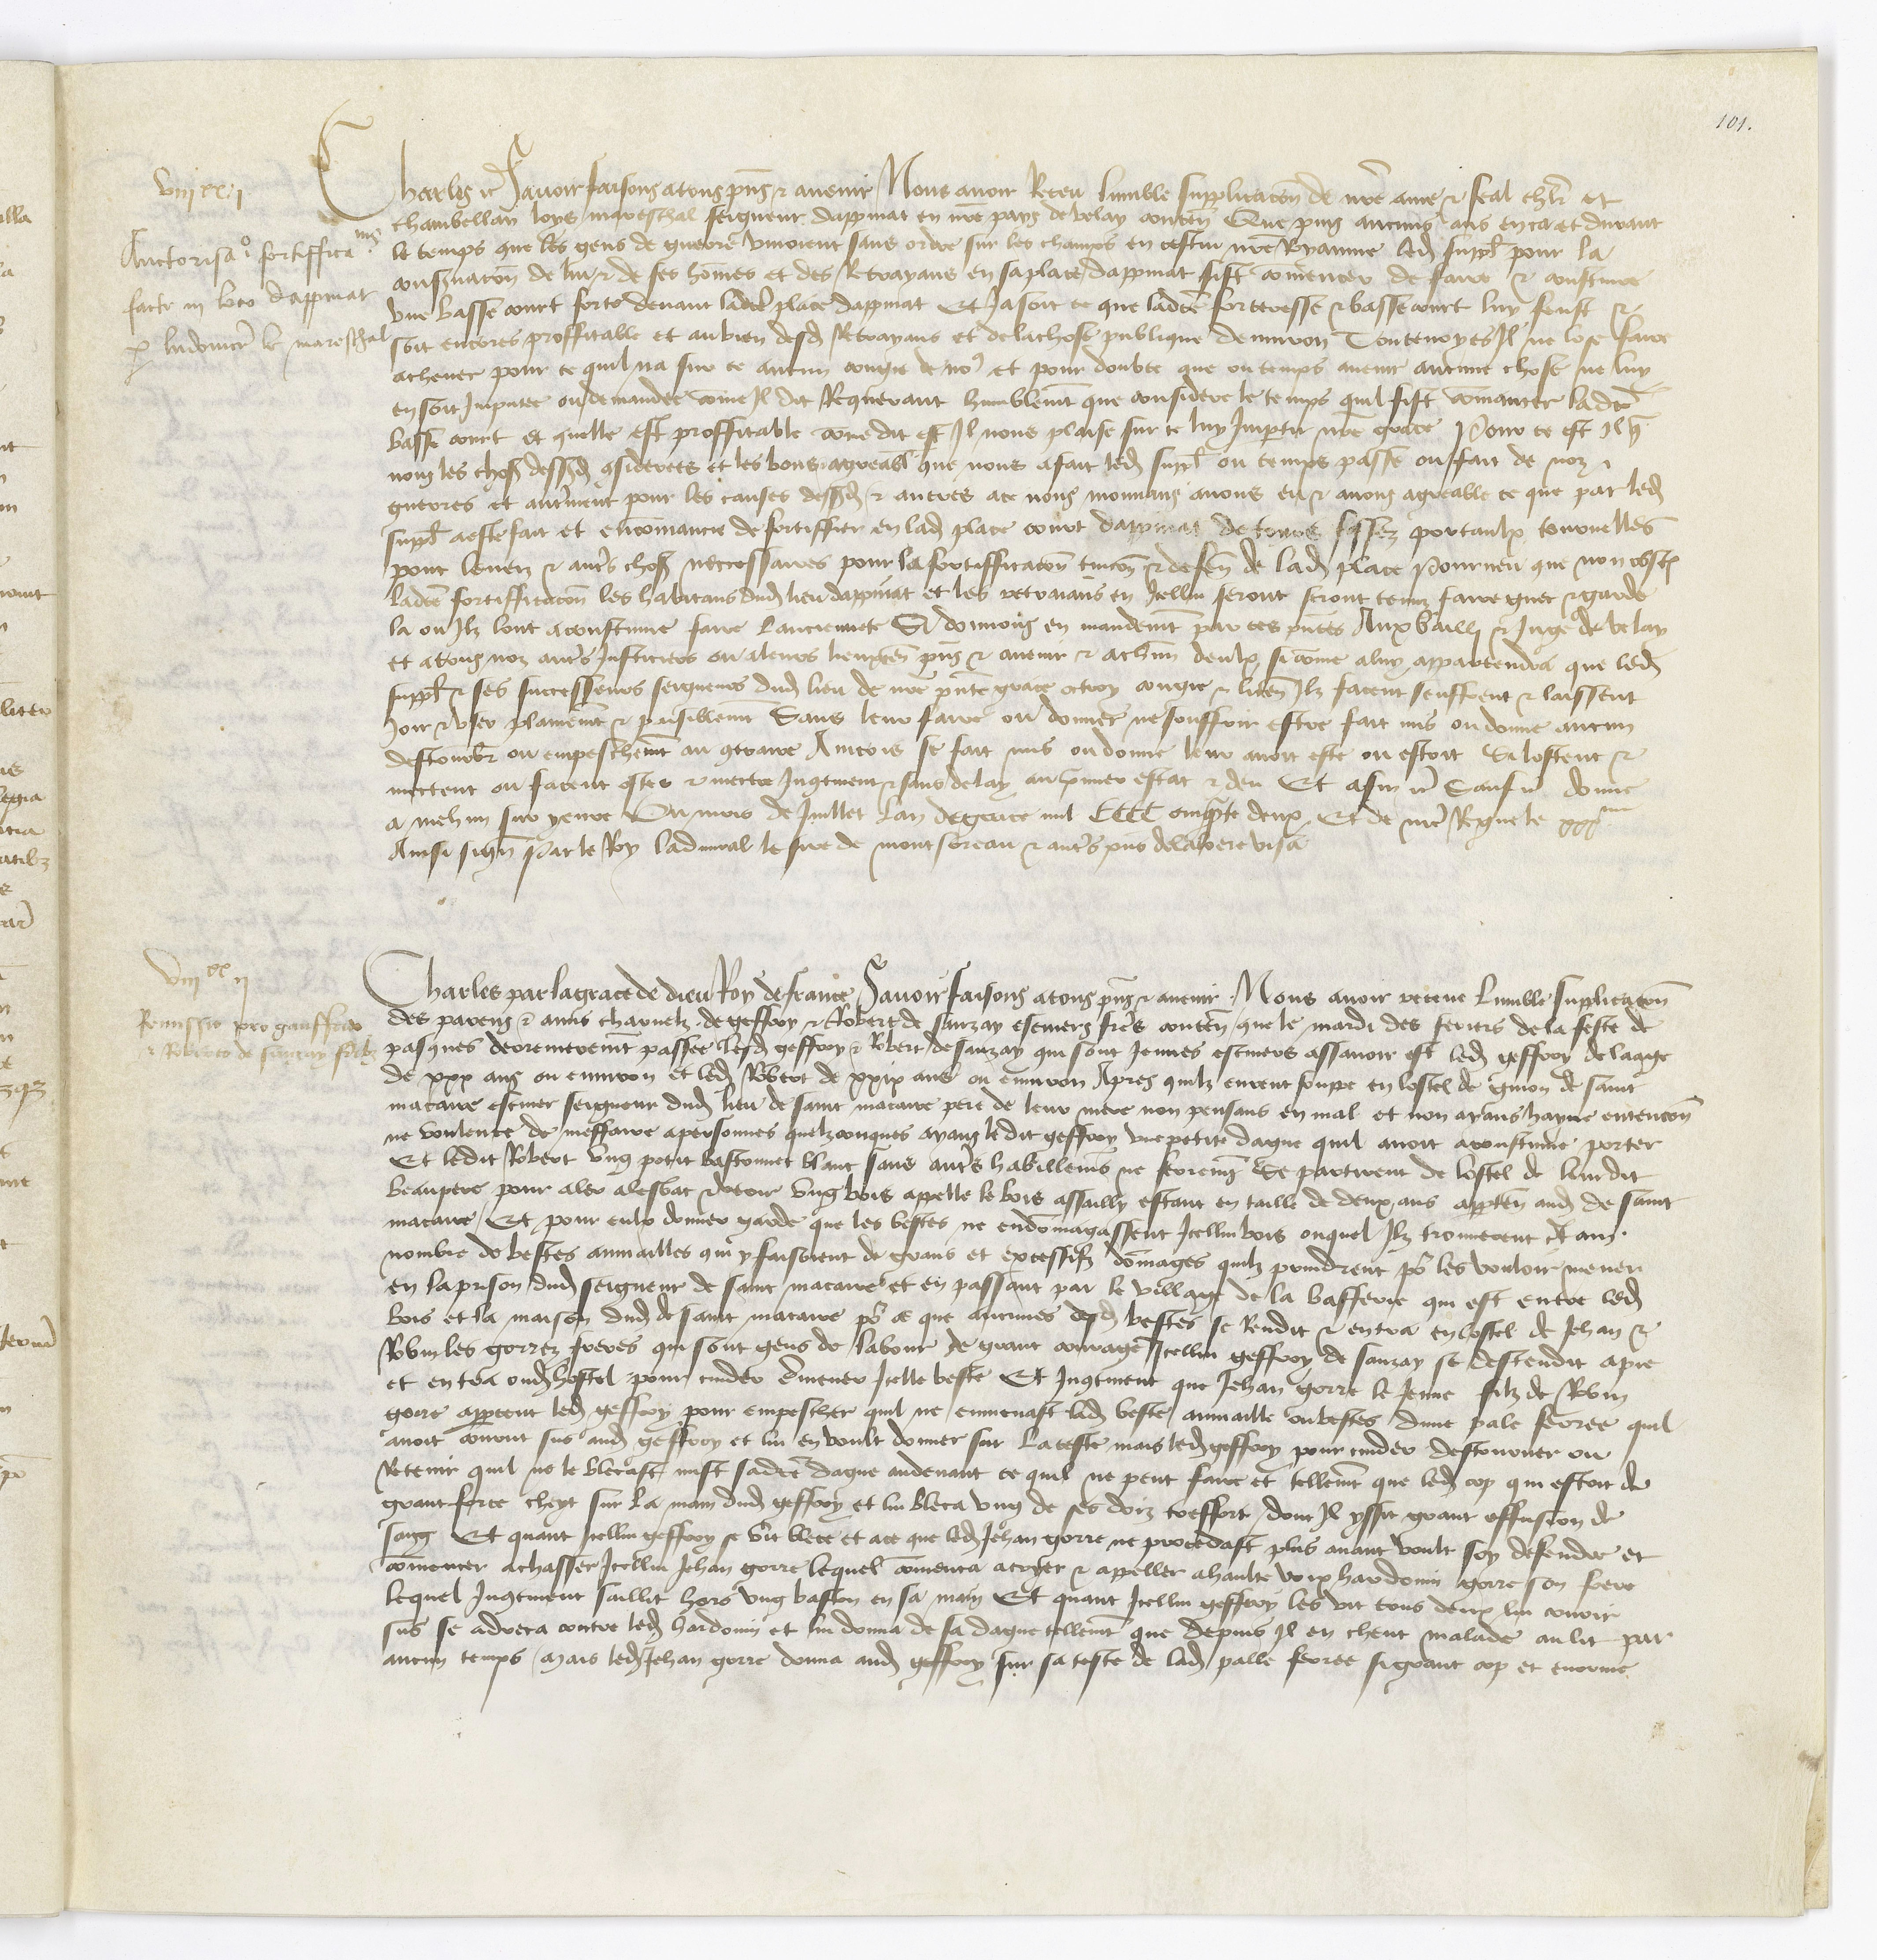 101.
Charles etc Savoir faisons a tous pñs & avenir Nous avoir receu lumble supplicacõn de nr̃e ame & feal chlr̃ et
VIIIxx I
chambellan loys mareschal seigneur dappinat en nr̃e pays de velay conteñ Que puis aucuns ans en ca et durant
Auctorisao fortifficanis
le temps que les gens de guerre vivoient sans ordre sur les champs en cestui nr̃e Royaume led supp̃l pour la
conservacõn de lui & de ses hõmes et des Retrayans en sa place dappinat fist cõmencer de faire & construire
facte in loco dappinat
une basse court forte devant ladc̃e place dappinat Et Jasoit ce que ladc̃e forteresse & basse court luy feust &
p ludovicu le mareschal
soit encores proffitable et au bien desd Retrayans et de la chose publique denviron Toutevoyes Il ne lose faire
achever pour ce quil na sur ce aucun congie de no9 et pour doubte que ou temps avenir aucune chose ne luy
en soit Imputee ou demandee cõme Il dit Requerant humblemt que considere le temps quil fist cõmancer ladc̃e
basse court et quelle est proffitable cõme dit est Il nous plaise sur ce luy Impartir nr̃e grace Pour ce est Il q̃
nous les choses dessusd considerees et les bons agreabl que nous a fait led supp̃l ou temps passe ou fait de noz
guerres et autrement pour les causes dessusd & autres a ce nous mouvans avons eu & avons agreable ce que par led
supp̃l a este fait et encõmancie de fortiffier en lad place court dappinat de tours fossez portaulx tournelles
pont leveiz & autr̃s choses necessaires pour la fortifficacõn tuicõn & defens de lad place Pourveu que non obst
ladc̃e fortifficacõn les habitans dud lieu dappinat et les retraians en Icellui seront seront tenuz faire guet & garde
la ou Ilz lont acoustume faire lanciennete Si donnons en mandemt par ces pñtes Aux bailli & Juge de velay
et a tous noz autr̃s Justiciers ou a leurs lieuxteñ pñs & avenir & a chũn deulx si cõme a luy appartendra que led
supp̃l & ses successeurs seigneurs dud lieu de nr̃e pñte grace octroy congie & liceñ Ilz facent seuffrent & laissent
Joir & user plainemt & paisiblemt Sans leur faire ou donner ne souffrir estre fait mis ou donne aucun
destourbr̃ ou empeschemt au contraire Aincois se fait mis ou donne leur avoit este ou estoit Si lostent &
mectent ou facent oster & mectre Incontinent & sans delay au premier estat & deu Et afin etc Sauf etc donne
a mehun sur yevre Ou mois de Juillet Lan de grace mil CCCC cinqte deux Et de nr̃e Regne le xxxme
Ainsi signe Par le Roy ladmiral le sire de monsoreau & autr̃s pñs delaloere visa
Charles par la grace de dieu Roy de france Savoir faisons a tous pñs & avenir Nous avoir receue lumble supplicacõn
VIIIxx II
des parens & amis charnelz de geffroy & Robert de sanzay escuiers frer̃s conteñ que le mardi des feriers de la feste de
Remissio pro gauffrido
pasques derrenieremt passee lesd geffroy & Robert de sanzay qui sont Jeunes escuiers assavoir est led geffroy de laaige
& Roberto de sanzay
de xxx ans ou environ et led Robert de xxix ans ou environ Apres quilz eurent souppe en lostel de guion de saint
macaire escuier seigneur dud lieu de saint macaire pere de leur mere non pensans en mal et non ayans hayne entencõn
ne voulente de meffaire a personnes quelzconques ayans ledit geffroy une petite dague quil avoit acoustume porter
Et ledit Robert ung petit bastonnet blanc sans autr̃s habillemẽs ne ferremẽs Se partirent de lostel de leurdit
beaupere pour aler a lesbat & veoir ung bois appelle le bois assailly estant en taille de deux ans apparteñ aud de saint
macaire Et pour eulx donner garde que les bestes ne endõmagassent Icellui bois ouquel Ilz trouverent
nombre de bestes aumailles qui y faisoient de grans et excessifz dõmages quilz prindrent po les vouloir mener
en la prison dud seigneur de saint macaire et en passant par le villaige de la bafferie qui est entre led
bois et la maison dud de saint macaire po ce que aucunes desd bestes se Rendit & entra en lostel de Jehan &
Robin les gorrez freres qui sont gens de labour de grant couraige Icellui geffroy de sanzay se descendit a pie
et entra oud hostel pour cuider emener Icelle beste Et Incontinent que Jehan gorre le Jeune filz de Robin
gorre apparceut led geffroy pour empescher quil ne enmenast lad beste aumaille ou bestes dune pale ferree quil
avoit courut sus aud geffroy et lui en voult donner sur la teste mais led geffroy pour cuider destourner ou
Retenir quil ne le blecast mist sadc̃e dague audevant ce quil ne peut faire et tellemt que led cop qui estoit de
grant force cheyt sur la main dud geffroy et lui bleca ung de ses doiz tresfort dont Il yssit grant effusion de
sang Et quant Icellui geffroy se vit blece et a ce que led Jehan gorre ne procedast plus avant voult soy defendre et
cõmencer a chasser Icellui Jehan gorre lequel cõmenca a crier & appeller a haulte voix hardouin gorre son frere
lequel Incontinent saillit hors ung baston en sa main Et quant Icellui geffroy les vit tous deux lui courir
sus se adreca contre led hardouin et lui donna de sa dague tellemt que depuis Il en cheut malade au lit par
aucun temps Mais led Jehan gorre donna aud geffroy sur sa teste de lad palle ferree si grant cop et enorme